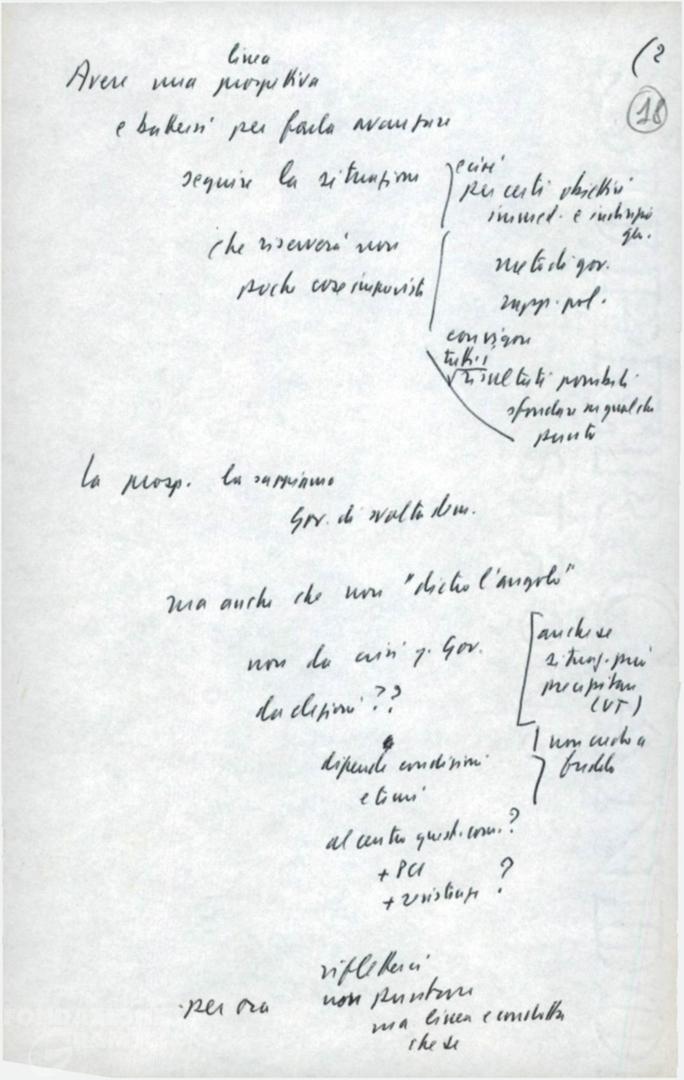 (2
18
linea
Avere una prospettiva
e battersi per farla avanzare
seguire la situazione
e così
per certi obiettivi
immed. e
che riserverà non
poche cose impreviste
metodi gov.
rapp. pol.
con vigore
tutti i
risultati possibili
sfondare in qualche
punto
La prosp. la sappiamo
Gov. di svolta dem.
ma anche che non "dietro l'angolo"
non da crisi q. Gov.
da elezioni ??
anche se
situaz. può
precipitare
(VT)
non credo a
freddo
dipende condizioni
e temi
al centro quest. com. ?
+ PCI
+ resistenze ?
per ora
rifletterci
non puntare
ma linea e condotta
che se